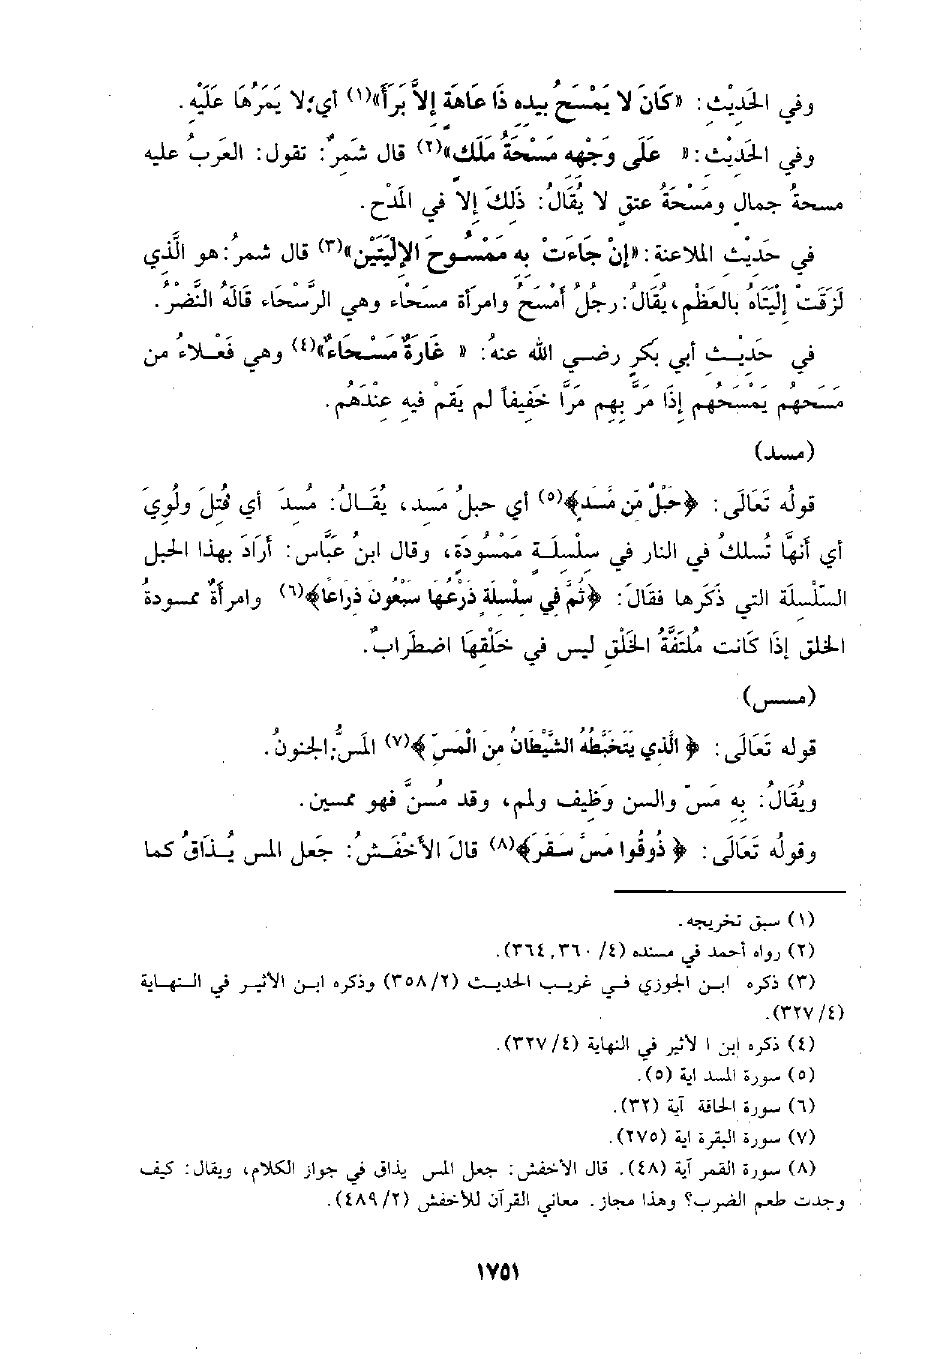 وفي الحَدِيْثِ: «كَانَ لا يَمْسَحُ بيدِهِ ذَا عَاهَةٍ إلاَّ بَرَأَ»(١) أي؛ لا يَمَرُهَا عَلَيْهِ.
وفي الحَدِيْثِ: « عَلَى وَجْهِهِ مَسْحَةُ مَلَكٍ»(٢) قال شَمَرٌ: تقول: العَربُ عليه
مسحةُ جمالٍ ومَسْحَةُ عتقٍ لا يُقَالُ: ذَلكَ إلاَّ في المَدْحِ.
في حَدِيْثِ الملاعنة: «إنْ جَاءَتْ بِهِ مَمْسُوحَ الإليَتَيْنِ»(٣) قال شمرُ: هو الَّذي
لَزَقَتْ إلْيَتَاهُ بالعَظْمِ، يُقَالُ: رجلُ أمْسَحُ وامرأة مسحَاء وهي الرَّسْحَاء قَالَهُ النَّضْرُ.
في حَدِيْثِ أبي بَكرٍ رضي الله عنهُ: « غَارَةٌ مَسْحَاءٌ»(٤) وهي فَعْلاءُ من
مَسَحَهُم يَمْسَحُهم إذَا مَرَّ بِهِم مَرَّا خَفيفاً لم يَقمْ فيهِ عِنْدَهُم.
(مسد)
قولُه تَعَالَى: ﴿حَبْلٌ مِّن مَّسَدٍ﴾(٥) أي حبلُ مَسدٍ، يُقَالُ: مُسِدَ أي فُتلَ ولُوِيَ
أي أنهَّا تُسلكُ في النار في سِلْسِلَةٍ مَمْسُودَةٍ، وقال ابنُ عَبَّاس: أرَادَ بهذا الحبل
السِّلْسِلة التي ذكَرها فقَالَ: ﴿ثُمَّ فِي سِلْسِلَةٍ ذَرْعُهَا سَبْعُونَ ذِرَاعًا﴾(٦) وامرأةٌ ممسودةُ
الخلق إذَا كَانت مُلتَفَّةُ الخَلْقِ ليس في خَلْقِهَا اضطَرابٌ.
(مسس)
قوله تَعَالَى: ﴿ الَّذي يَتَخَبَّطُهُ الشَّيْطَانُ مِنَ الْمَسِّ ﴾(٧) المَسُّ: الجنونُ.
ويُقَالُ: بِهِ مَسّ والسن وَظيف ولمم، وقد مُسنَّ فهو ممسين.
وقولُه تَعَالَى: ﴿ ذُوقُوا مَسَّ سَقَرَ﴾(٨) قالَ الأخْفَشُ: جَعل المس يُذَاقُ كما
(١) سبق تخريجه.
(٢) رواه أحمد في مسنده (٤/ ٣٦٠، ٣٦٤).
(٣) ذكره ابن الجوزي في غريب الحديث (٣٥٨/٢) وذكره ابن الأثير في النهاية
(٣٢٧/٤).
(٤) ذكره إبن ا لأثير في النهاية (٣٢٧/٤).
(٥) سورة المسد اية (٥).
(٦) سورة الحاقة آية (٣٢).
(٧) سورة البقرة اية (٢٧٥).
(٨) سورة القمر آية (٤٨). قال الأخفش: جعل المس يذاق في جواز الكلام، ويقال: كيف
وجدت طعم الضرب؟ وهذا مجاز. معاني القرآن للأخفش (٤٨٩/٢).
١٧٥١